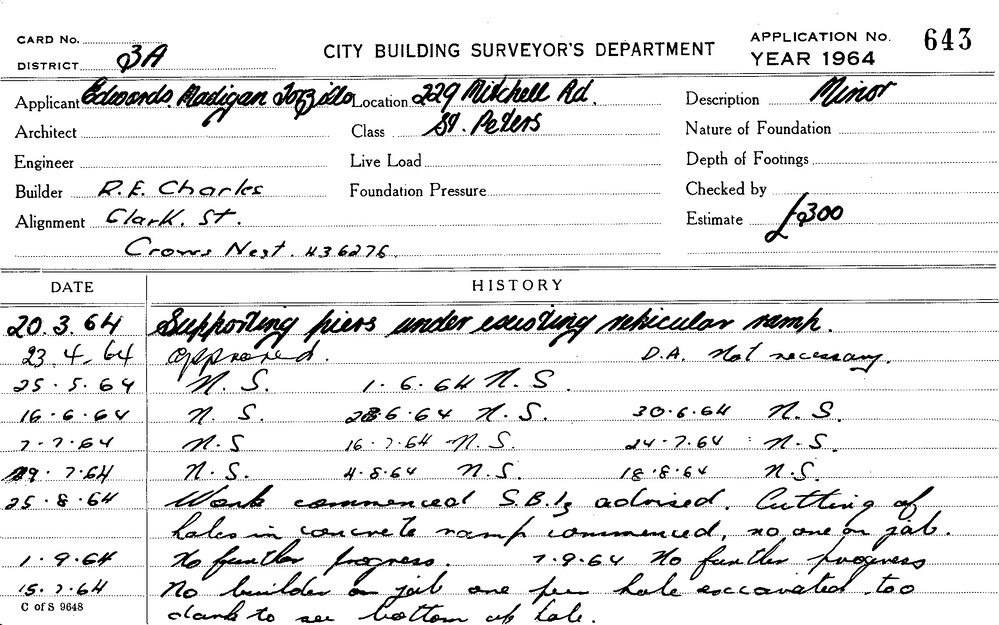 CARD No.
DISTRICT 3A
CITY BUILDING SURVEYOR'S DEPARTMENT
APPLICATION No. 643
YEAR 1964
Applicant Edwards Madigan Torzillo Location 229 Mitchell Rd. Description Minor
Architect Class St. Peters Nature of Foundation
Engineer Live Load Depth of Footings
Builder R.E. Charles Foundation Pressure Checked by
Alignment Clark. St. Estimate £300
Crows Nest. 436276.
DATE HISTORY
20.3.64 Supporting piers under existing vehicular ramp.
23.4.64 approved. D.A. Not necessary.
25.5.64 N.S. 1.6.64 N.S.
16.6.64 N.S. 6.64 N.S. 30.6.64 N.S.
7.7.64 N.S 16.7.64 N.S. 24.7.64 N.S.
29.7.64 N.S. 4.8.64 N.S. 18.8.64 N.S.
25.8.64 Work commenced S.B. advised. Cutting of
holes in concrete ramp commenced, no one on job.
1.9.64 No further progress. 7.9.64 No further progress
15.7.64 No builder on job one pier hole excavated too
C of S 9648
dark to see bottom of hole.